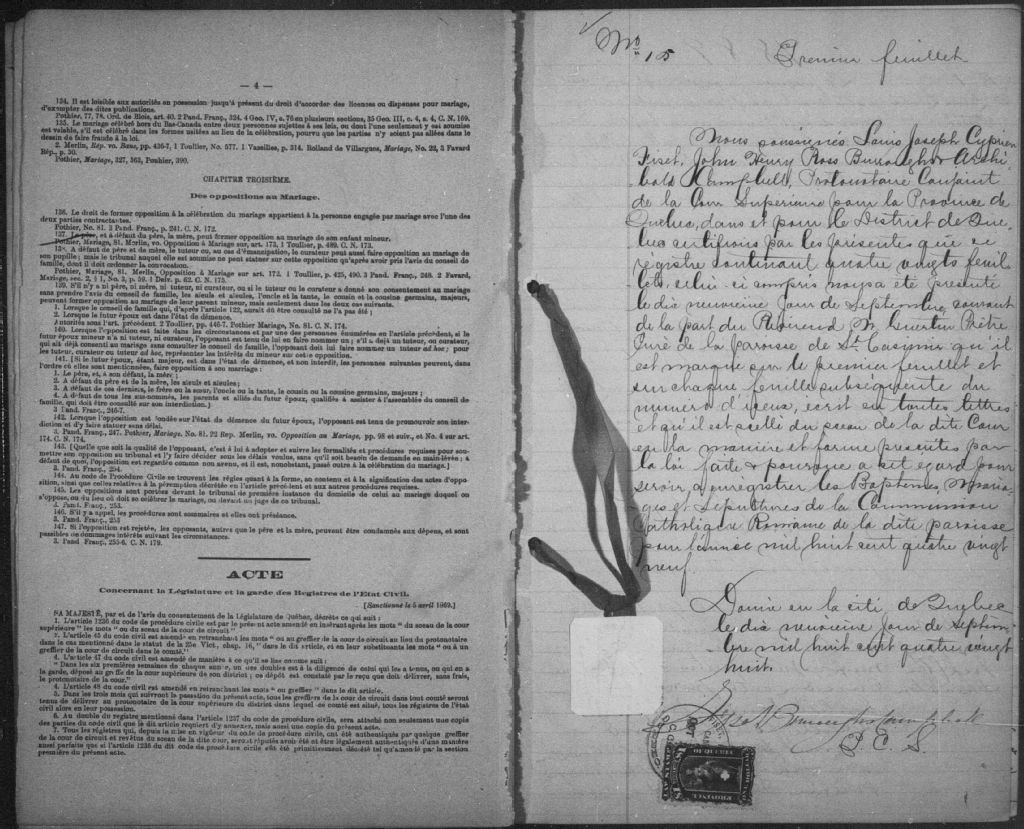 — 4 —
134. Il est loisible aux autorités en possession jusqu'à présent du droit d'accorder des licences ou dispenses pour mariage,
d'exempter des dites publications.
Pothier, 77, 78. Ord. de Blois, art. 40. 2 Pand. Franç., 324. 4 Geo. IV, a. 76 en plusieurs sections, 35 Geo. III, c. 4, s. 4, C. N. 169.
135. Le mariage célébré hors du Bas-Canada entre deux personnes sujettes à ses lois, ou dont l'une seulement y est soumise
est valable, s'il est célébré dans les formes usitées au lieu de la célébration, pourvu que les parties n'y soient pas allées dans le
dessin de faire fraude à la loi.
2. Merlin, Rép. vo. Bans, pp. 436-7, 1 Toullier, No. 577. 1 Vazeilles, p. 314. Rolland de Villargues, Mariage, No. 22, 3 Favard
Rép., p. 30.
Pothier, Mariage, 327, 363, Pouhier, 390.
CHAPITRE TROISIÈME.
Des oppositions au Mariage.
136. Le droit de former opposition à la célébration du mariage appartient à la personne engagée par mariage avec l'une des
deux parties contractantes.
Pothier, No. 81. 3 Pand. Franç., p. 241. C. N. 172.
137. Le père, et à défaut du père, la mère, peut former opposition au mariage de son enfant mineur.
Pothier, Mariage, 81. Merlin, vo. Opposition à Mariage, sur art. 173, 1 Toullier, p. 489. C. N. 173.
138. A défaut de père et de mère, le tuteur ou, au cas d'émancipation, le curateur peut aussi faire opposition au mariage de
son pupille; mais le tribunal auquel elle est soumise ne peut statuer sur cette opposition qu'après avoir pris l'avis du conseil de
famille, dont il doit ordonner la convocation.
Pothier, Mariage, 81. Merlin, Opposition à Mariage sur art. 172. 1 Toullier, p. 425, 490. 3 Pand. Franç., 248. 2 Favard,
Mariage, sec. 2, § 1, No. 3, p. 59. 1 Delv. p. 62. C. N. 175.
139. S'il n'y a ni père, ni mère, ni tuteur, ni curateur, ou si le tuteur ou le curateur a donné son consentement au mariage
sans prendre l'avis du conseil de famille, les aïeuls et aïeules, l'oncle et la tante, le cousin et la cousine germains, majeurs,
peuvent former opposition au mariage de leur parent mineur, mais seulement dans les deux cas suivants.
1. Lorsque le conseil de famille qui, d'après l'article 122, aurait dû être consulté ne l'a pas été;
2. Lorsque le futur époux est dans l'état de démence.
Autorités sous l'art. précédent. 2 Toullier, pp. 446-7. Pothier Mariage, No. 81. C. N. 174.
140. Lorsque l'opposition est faite dans les circonstances et par une des personnes énumérées en l'article précédent, si le
futur époux mineur n'a ni tuteur, ni curateur, l'opposant est tenu de lui en faire nommer un; s'il a déjà un tuteur, ou curateur,
qui ait déjà consenti au mariage sans consulter le conseil de famille, l'opposant doit lui faire nommer un tuteur ad hoc; pour
les tuteur, curateur ou tuteur ad hoc, représenter les intérêts du mineur sur cette opposition.
141. [Si le futur époux, étant majeur, est dans l'état de démence, et non interdit, les personnes suivantes peuvent, dans
l'ordre où elles sont mentionnées, faire opposition à son mariage:
1. Le père, et, à son défaut, la mère;
2. A défaut du père et de la mère, les aïeuls et aïeules;
3. A défaut de ces derniers, le frère ou la sœur, l'oncle ou la tante, le cousin ou la cousine germains, majeurs;
4. A défaut de tous les sus-nommés, les parents et alliés du futur époux, qualifiés à assister à l'assemblée du conseil de
famille, qui doit être consulté sur son interdiction.]
3 Pand. Franç., 246-7.
142. Lorsque l'opposition est fondée sur l'état de démence du futur époux, l'opposant est tenu de promouvoir son inter-
diction et d'y faire statuer sans délai.
3. Pand. Franç., 247. Pothier, Mariage, No. 81. 22 Rep. Merlin, vo. Opposition au Mariage, pp. 98 et suiv., et No. 4 sur art.
174. C. N. 174.
143. [Quelle que soit la qualité de l'opposant, c'est à lui à adopter et suivre les formalités et procédures requises pour sou-
mettre son opposition au tribunal et l'y faire décider sous les délais voulus, sans qu'il soit besoin de demande en main-levée; à
défaut de quoi, l'opposition est regardée comme non avenu, et il est, nonobstant, passé outre à la célébration du mariage.]
3. Pand. Franç., 254.
144. Au code de Procédure Civile se trouvent les règles quant à la forme, au contenu et à la signification des actes d'oppo-
sition, ainsi que celles relatives à la péremption décrétée en l'article précédent et aux autres procédures requises.
145. Les oppositions sont portées devant le tribunal de première instance du domicile de celui au mariage duquel on
s'oppose, ou du lieu où doit se célébrer le mariage, ou devant un juge de ce tribunal.
3. Pand. Franç., 253.
146. S'il y a appel, les procédures sont sommaires et elles ont préséance.
3. Pand. Franç., 253
147. Si l'opposition est rejetée, les opposants, autres que le père et la mère, peuvent être condamnés aux dépens, et sont
passibles de dommages intérêts suivant les circonstances.
3. Pand. Franç., 255-6. C. N. 179.
ACTE
Concernant la Législature et la garde des Registres de l'Etat Civil.
[Sanctionné le 5 avril 1869.]
SA MAJESTÉ, par et de l'avis du consentement de la Législature de Québec, décrète ce qui suit:
1. L'article 1236 du code de procédure civile est par le présent acte amendé en insérant après les mots "du sceau de la cour
supérieure" les mots "ou du sceau de la cour de circuit"
2. L'article 45 du code civil est amendé en retranchant les mots "ou au greffier de la cour de circuit au lieu du protonotaire
dans le cas mentionné dans le statut de la 25e Vict., chap. 16," dans le dit article, et en leur substituant les mots "ou à un
greffier de la cour de circuit dans le comté."
4. L'article 47 du code civil est amendé de manière à ce qu'il se lise comme suit:
"Dans les six premières semaines de chaque année, un des doubles est à la diligence de celui qui les a tenus, ou qui en a
la garde, déposé au greffe de la cour supérieure de son district; ce dépôt est constaté par le reçu que doit délivrer, sans frais,
le protonotaire de la cour."
4. L'article 48 du code civil est amendé en retranchant les mots "ou greffier" dans le dit article.
5. Dans les trois mois qui suivront la passation du présent acte, tous les greffiers de la cour de circuit dans tout comté seront
tenus de délivrer au protonotaire de la cour supérieure du district dans lequel ce comté est situé, tous les registres de l'état
civil alors en leur possession.
6. Au double du registre mentionné dans l'article 1237 du code de procédure civile, sera attaché non seulement une copie
des parties du code civil que le dit article requiert d'y annexer, mais aussi une copie du présent acte.
7. Tous les registres qui, depuis la mise en vigueur du code de procédure civile, ont été authentiqués par quelque greffier
de la cour de circuit et revêtus du sceau de la dite cour, seront réputés avoir été et être légalement authentiqués d'une manière
aussi parfaite que si l'article 1236 du dit code de procédure civile eût été primitivement décrété tel qu'amendé par la section
première du présent acte.
No 15
Premier feuillet
Nous soussignés Louis Joseph Cyprien
Fiset, John Henry Ross Burroughs & Archi-
bald Campbell, Protonotaire Conjoint
de la Cour Supérieure pour la Province de
Québec, dans et pour le District de Qué-
bec certifions par les présentes que ce
régistre contenant quatre vingts feuil
lets, celui-ci compris nous a été présenté
le dix neuvième jour de Septembre courant
de la part du Révérend M. Guertin Prêtre
Curé de la paroisse de St. Casimir qu'il
est marqué sur le premier feuillet et
sur chaque feuille subséquente du
numéro d'iceux, écrit en toutes lettres
et qu'il est scellé du sceau de la dite Cour
en la manière et forme prescrites par
la loi faite & pourvue à cet égard pour
servir à enregistrer les Baptêmes Maria-
ges et Sépultures de la Communion
Catholique Romaine de la dite paroisse
pour l'année mil huit cent quatre vingt
neuf.
Donné en la cité de Québec
le dix neuvième jour de Septem-
bre mil huit cent quatre vingt
huit.
Fiset Burroughs Campbell
P. C. S.
OF QUEBEC
PROVINCE
LAW STAMP
ONE DOLLAR